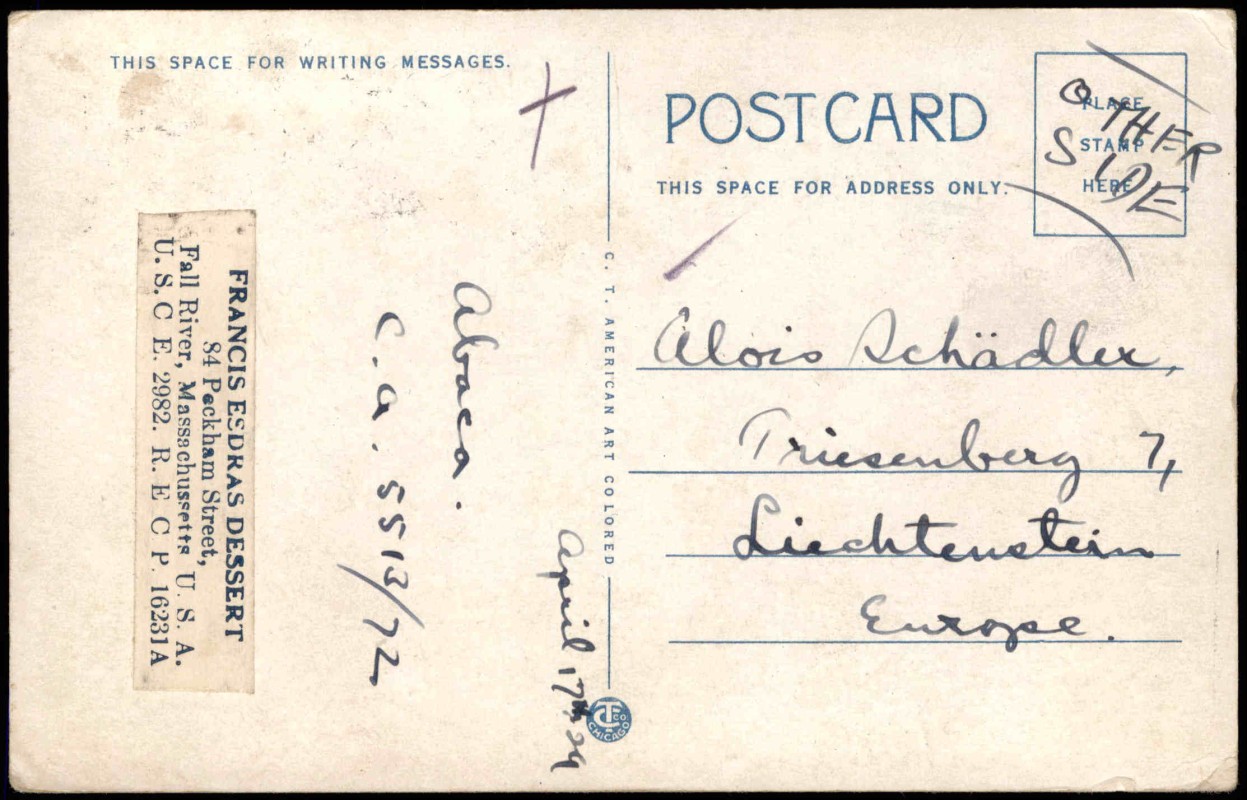 THIS SPACE FOR WRITING MESSAGES.
POST CARD
THIS SPACE FOR ADDRESS ONLY.
PLACE
STAMP
HERE
OTHER
SIDE
Alois Schädler,
Triesenberg 7,
Liechtenstein
Europe.
C. T. AMERICAN ART COLORED
Abaca.
C. A. 5513/72
April 17th, 29
FRANCIS ESDRAS DESSERT
84 Peckham Street,
Fall River, Massachussetts U. S. A.
U. S. C E. 2982. R. E C P. 16231A
CT CO
CHICAGO